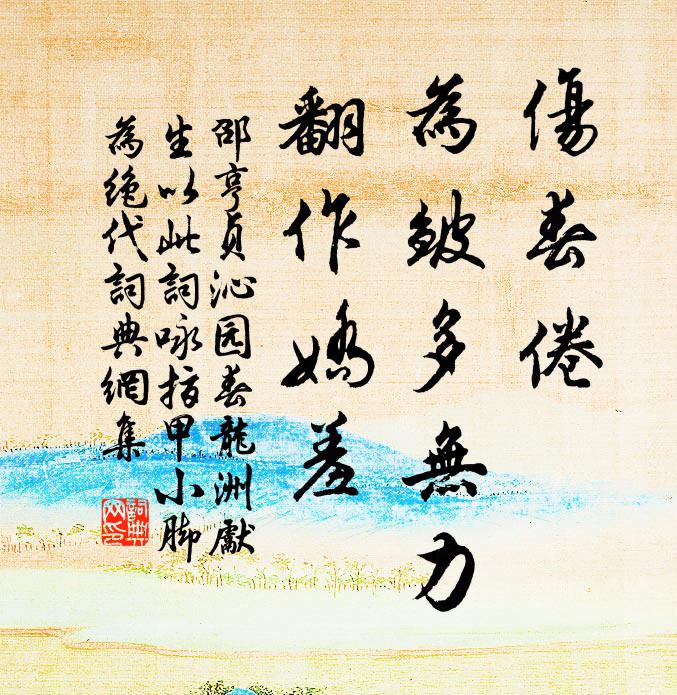 傷春倦
為皴多無力
翻作嬌羞
邵亨貞沁园春龍洲獻
生以此詞咏指甲小腳
為絶代詞典網集
詞典